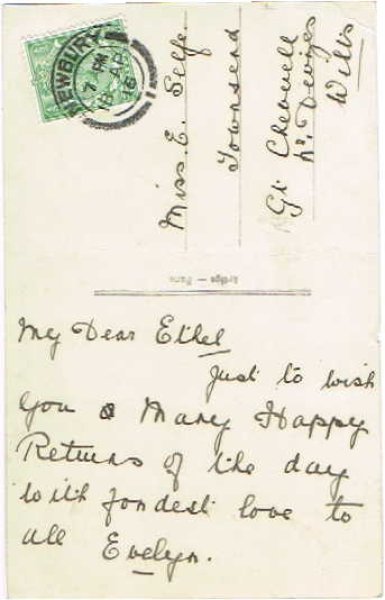 NEWBURY
7 PM
AP
16
Miss. E. Selfe
Townsend
Gt Cheverell
Nr Devizes
Wilts
My Dear Ethel
Just to wish
you a Many Happy
Returns of the day
with fondest love to
all Evelyn.